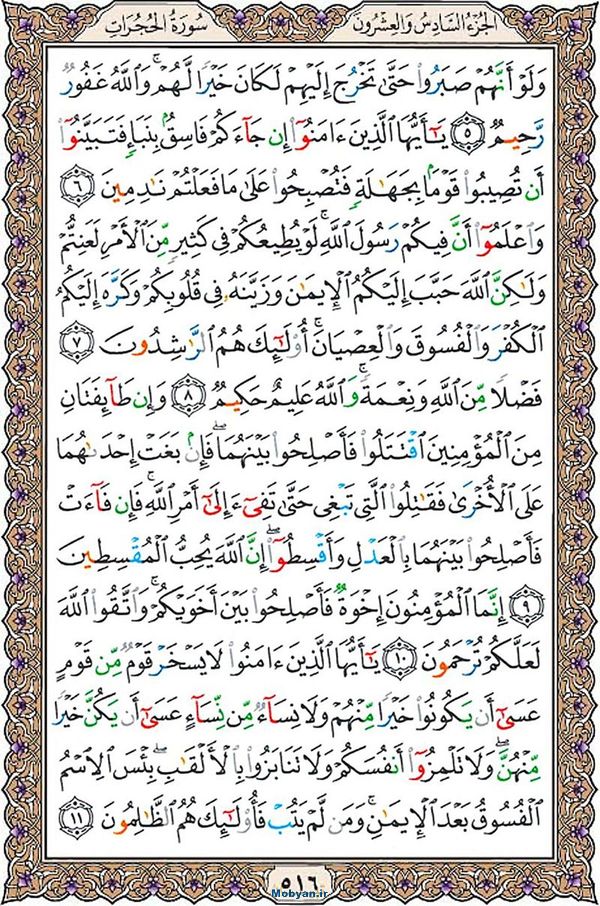 الجزء السادس والعشرون
سورة الحجرات
وَلَوْ أَنَّهُمْ صَبَرُوا۟ حَتَّىٰ تَخْرُجَ إِلَيْهِمْ لَكَانَ خَيْرًا لَّهُمْ ۚ وَٱللَّهُ غَفُورٌ
رَّحِيمٌ ٥ يَـٰٓأَيُّهَا ٱلَّذِينَ ءَامَنُوٓا۟ إِن جَآءَكُمْ فَاسِقٌۢ بِنَبَإٍ فَتَبَيَّنُوٓا۟
أَن تُصِيبُوا۟ قَوْمًۢا بِجَهَـٰلَةٍ فَتُصْبِحُوا۟ عَلَىٰ مَا فَعَلْتُمْ نَـٰدِمِينَ ٦
وَٱعْلَمُوٓا۟ أَنَّ فِيكُمْ رَسُولَ ٱللَّهِ ۚ لَوْ يُطِيعُكُمْ فِى كَثِيرٍ مِّنَ ٱلْأَمْرِ لَعَنِتُّمْ
وَلَـٰكِنَّ ٱللَّهَ حَبَّبَ إِلَيْكُمُ ٱلْإِيمَـٰنَ وَزَيَّنَهُۥ فِى قُلُوبِكُمْ وَكَرَّهَ إِلَيْكُمُ
ٱلْكُفْرَ وَٱلْفُسُوقَ وَٱلْعِصْيَانَ ۚ أُو۟لَـٰٓئِكَ هُمُ ٱلرَّٰشِدُونَ ٧
فَضْلًا مِّنَ ٱللَّهِ وَنِعْمَةً ۚ وَٱللَّهُ عَلِيمٌ حَكِيمٌ ٨ وَإِن طَآئِفَتَانِ
مِنَ ٱلْمُؤْمِنِينَ ٱقْتَتَلُوا۟ فَأَصْلِحُوا۟ بَيْنَهُمَا ۖ فَإِنۢ بَغَتْ إِحْدَىٰهُمَا
عَلَى ٱلْأُخْرَىٰ فَقَـٰتِلُوا۟ ٱلَّتِى تَبْغِى حَتَّىٰ تَفِىٓءَ إِلَىٰٓ أَمْرِ ٱللَّهِ ۚ فَإِن فَآءَتْ
فَأَصْلِحُوا۟ بَيْنَهُمَا بِٱلْعَدْلِ وَأَقْسِطُوٓا۟ ۖ إِنَّ ٱللَّهَ يُحِبُّ ٱلْمُقْسِطِينَ
٩ إِنَّمَا ٱلْمُؤْمِنُونَ إِخْوَةٌ فَأَصْلِحُوا۟ بَيْنَ أَخَوَيْكُمْ ۚ وَٱتَّقُوا۟ ٱللَّهَ
لَعَلَّكُمْ تُرْحَمُونَ ١٠ يَـٰٓأَيُّهَا ٱلَّذِينَ ءَامَنُوا۟ لَا يَسْخَرْ قَوْمٌ مِّن قَوْمٍ
عَسَىٰٓ أَن يَكُونُوا۟ خَيْرًا مِّنْهُمْ وَلَا نِسَآءٌ مِّن نِّسَآءٍ عَسَىٰٓ أَن يَكُنَّ خَيْرًا
مِّنْهُنَّ ۖ وَلَا تَلْمِزُوٓا۟ أَنفُسَكُمْ وَلَا تَنَابَزُوا۟ بِٱلْأَلْقَـٰبِ ۖ بِئْسَ ٱلِٱسْمُ
ٱلْفُسُوقُ بَعْدَ ٱلْإِيمَـٰنِ ۚ وَمَن لَّمْ يَتُبْ فَأُو۟لَـٰٓئِكَ هُمُ ٱلظَّـٰلِمُونَ ١١
٥١٦
Mobyan.ir